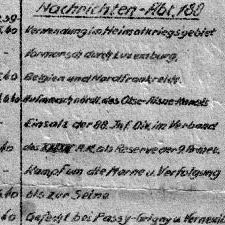 Nachrichten - Abt. 188
39 Verwendung im Heimatkriegsgebiet
40 Vormarsch durch Luxemburg,
40 Belgien und Nordfrankreich.
40 nördl. des Oise-Aisne-Kanals
Einsatz der 88. Inf. Div. im Verband
40 des A.K. als Reserve der 9. Armee.
Kampf um die Marne u. Verfolgung
40 bis zur Seine
40 Gefecht bei Passy-Grigny u. Verneuil